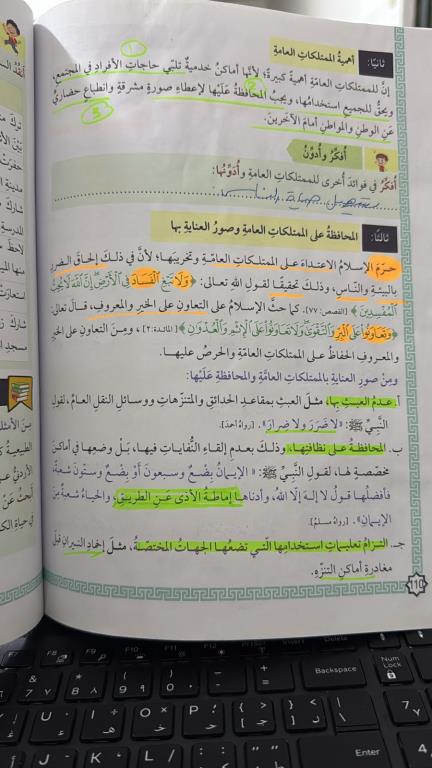 ثانيًا: أهميةُ الممتلكاتِ العامةِ
إنَّ للممتلكاتِ العامةِ أهميةً كبيرةً؛ لأنَّها أماكنُ خدميةٌ تلبّي حاجاتِ الأفرادِ في المجتمعِ،
ويحقُّ للجميعِ استخدامُها، ويجبُ المحافظةُ عليْها لإعطاءِ صورةٍ مشرقةٍ وانطباعٍ حضاريٍّ
عنِ الوطنِ والمواطنِ أمامَ الآخرينَ.
أفكِّرُ وأدوِّنُ
أُفكِّرُ في فوائدَ أُخرى للممتلكاتِ العامةِ وأُدوِّنُها:
ثالثًا: المحافظةُ على الممتلكاتِ العامةِ وصورُ العنايةِ بها
حرّمَ الإسلامُ الاعتداءَ على الممتلكاتِ العامّةِ وتخريبَها؛ لأنَّ في ذلكَ إلحاقَ الضررِ
بالبيئةِ والنّاسِ، وذلكَ تحقيقًا لقولِ اللهِ تعالى: ﴿وَلَا تَبْغِ الْفَسَادَ فِي الْأَرْضِ إِنَّ اللَّهَ لَا يُحِبُّ
الْمُفْسِدِينَ﴾ [القصص: ٧٧]. كما حثَّ الإسلامُ على التعاونِ على الخيرِ والمعروفِ، قالَ تعالى:
﴿وَتَعَاوَنُوا عَلَى الْبِرِّ وَالتَّقْوَىٰ وَلَا تَعَاوَنُوا عَلَى الْإِثْمِ وَالْعُدْوَانِ﴾ [المائدة: ٢]، ومِنَ التعاونِ على الخيرِ
والمعروفِ الحفاظُ على الممتلكاتِ العامّةِ والحرصُ عليها.
ومِنْ صورِ العنايةِ بالممتلكاتِ العامّةِ والمحافظةِ عَليْها:
أ. عدمُ العبثِ بها، مثلَ العبثِ بمقاعدِ الحدائقِ والمتنزّهاتِ ووسائلِ النقلِ العامِّ، لقولِ
النبيِّ ﷺ: «لا ضَررَ ولا ضِرارَ». [رواهُ أحمدُ].
ب. المحافظةُ على نظافتِها، وذلكَ بعدمِ إلقاءِ النُّفاياتِ فيها، بلْ وضعِها في أماكنَ
مخصّصةٍ لها، لقولِ النّبيِّ ﷺ: «الإيمانُ بِضْعٌ وسبعونَ أوْ بِضْعٌ وستّونَ شُعبةً،
فأفضلُها قولُ لا إلهَ إلّا اللهُ، وأدناها إماطةُ الأذى عنِ الطريقِ، والحياءُ شعبةٌ مِنَ
الإيمانِ». [رواهُ مسلمٌ].
جـ. التزامُ تعليماتِ استخدامِها الّتي تضعُها الجهاتُ المختصّةُ، مثلَ إخمادِ النيرانِ قبلَ
مغادرةِ أماكنِ التنزّهِ.
110
F8
F9
F10
F11
F12
Insert
Delete
Backspace
Num Lock
Enter
U
I
O
P
J
K
L